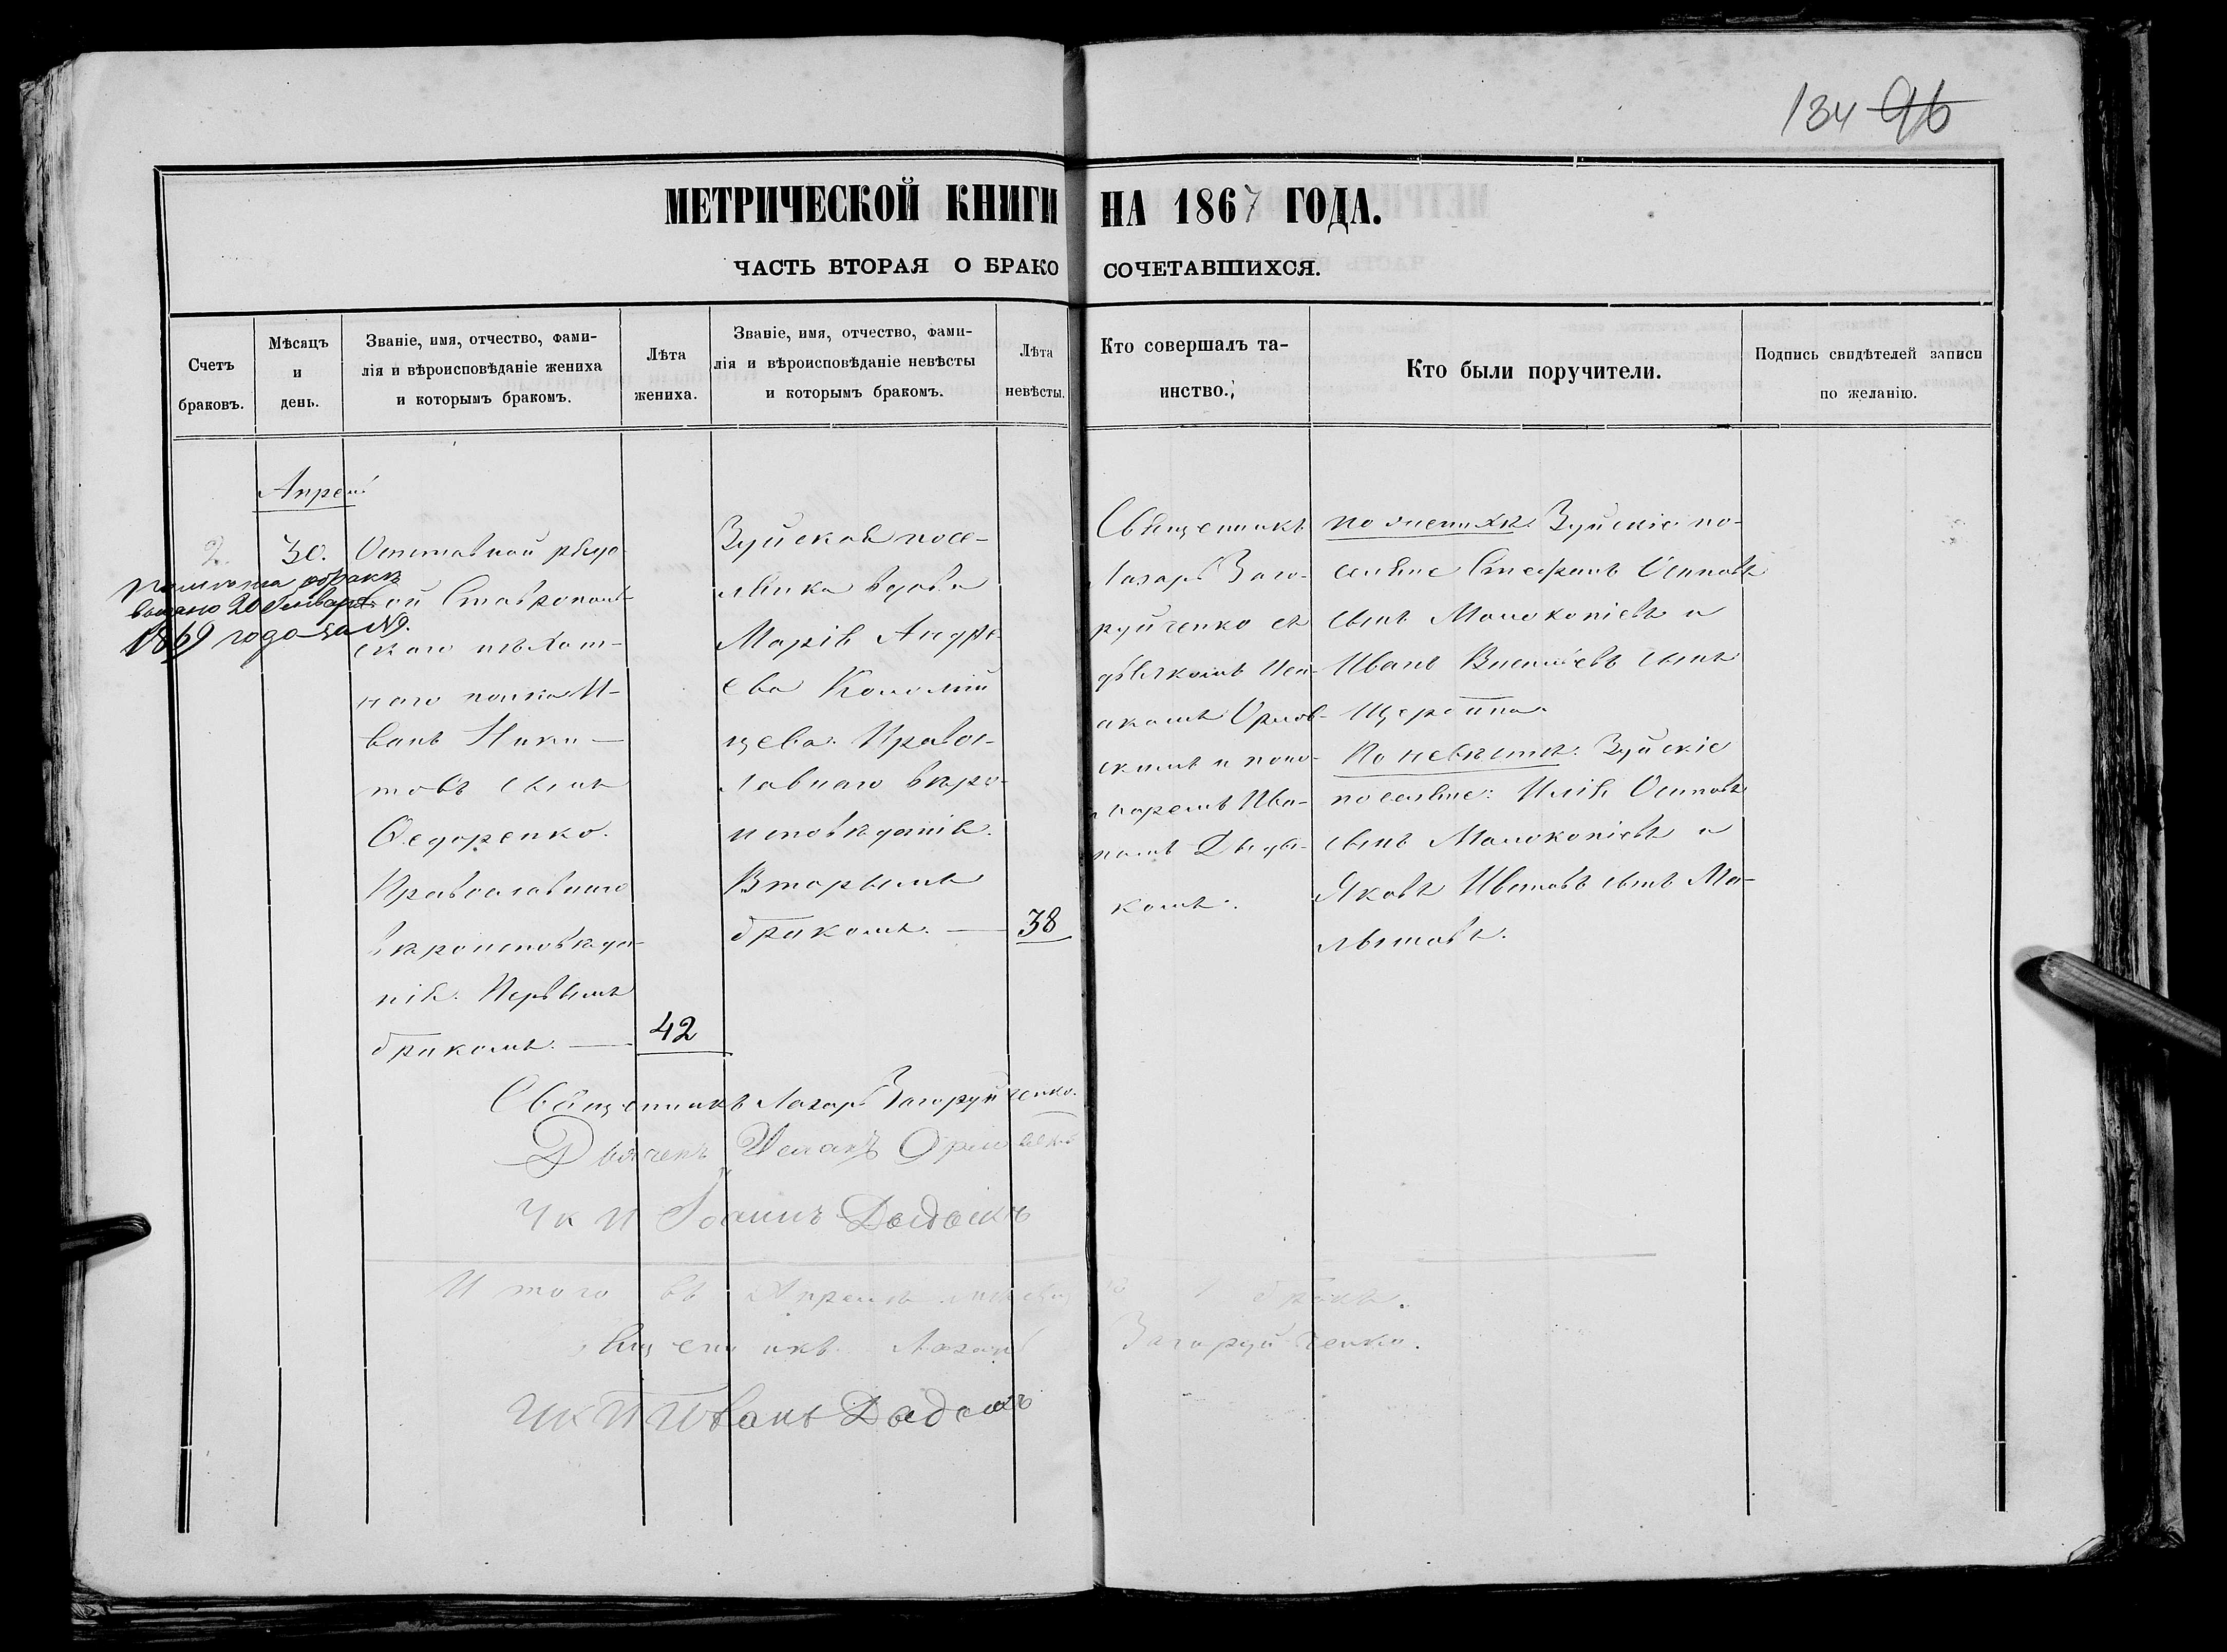 134 96
МЕТРИЧЕСКОЙ КНИГИ НА 1867 ГОДА.
ЧАСТЬ ВТОРАЯ О БРАКОСОЧЕТАВШИХСЯ.
Счетъ
браковъ.
Мѣсяцъ
и
день.
Званіе, имя, отчество, фами-
лія и вѣроисповѣданіе жениха
и которымъ бракомъ.
Лѣта
жениха.
Званіе, имя, отчество, фами-
лія и вѣроисповѣданіе невѣсты
и которымъ бракомъ.
Лѣта
невѣсты.
Кто совершалъ та-
инство.
Кто были поручители.
Подпись свидѣтелей записи
по желанію.
2.
о бракѣ
выдано 20 Января
1869 года за №9.
Апрель
30.
Отставной рядо-
вой Ставрополь-
скаго пѣхот-
наго полка И-
ванъ Ники-
товъ сынъ
Федоренко.
Православнаго
вѣроисповѣда-
нія. Первымъ
бракомъ.
42
Зуйская посе-
лянка вдова
Марія Андрѣ-
ева Коломій
цева. Правос-
лавнаго вѣро-
исповѣданія.
Вторымъ
бракомъ.
38
Священникъ
Лазарь Заго-
руйченко съ
дьячкомъ Иса-
акомъ Орлов-
скимъ и поно-
маремъ Ива-
номъ Дыды-
комъ.
по женихѣ: Зуйскіе по-
селяне Стефанъ Осиповъ
сынъ Молокопіевъ и
Иванъ сынъ
Щербина.
По невѣстѣ: Зуйскіе
поселяне: Илія Осиповъ
сынъ Молокопіевъ и
Яковъ сынъ Ма-
Священникъ Лазарь Загоруйченко.
Дьячекъ Исаакъ Орловскій
И Іоаннъ Дыдыкъ
Итого въ Апрелѣ мѣсяцѣ 1 бракъ.
Священникъ Лазарь Загоруйченко.
Иванъ Дыдыкъ